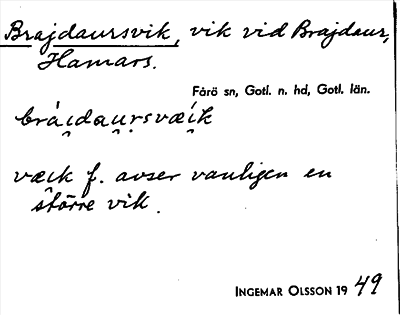 Brajdaursvik, vik vid Brajdaur,
Hamars.
Fårö sn, Gotl. n. hd, Gotl. län.
brái̯dau̯rsvæi̯k
væi̯k f. avser vanligen en
större vik.
INGEMAR OLSSON 19 49